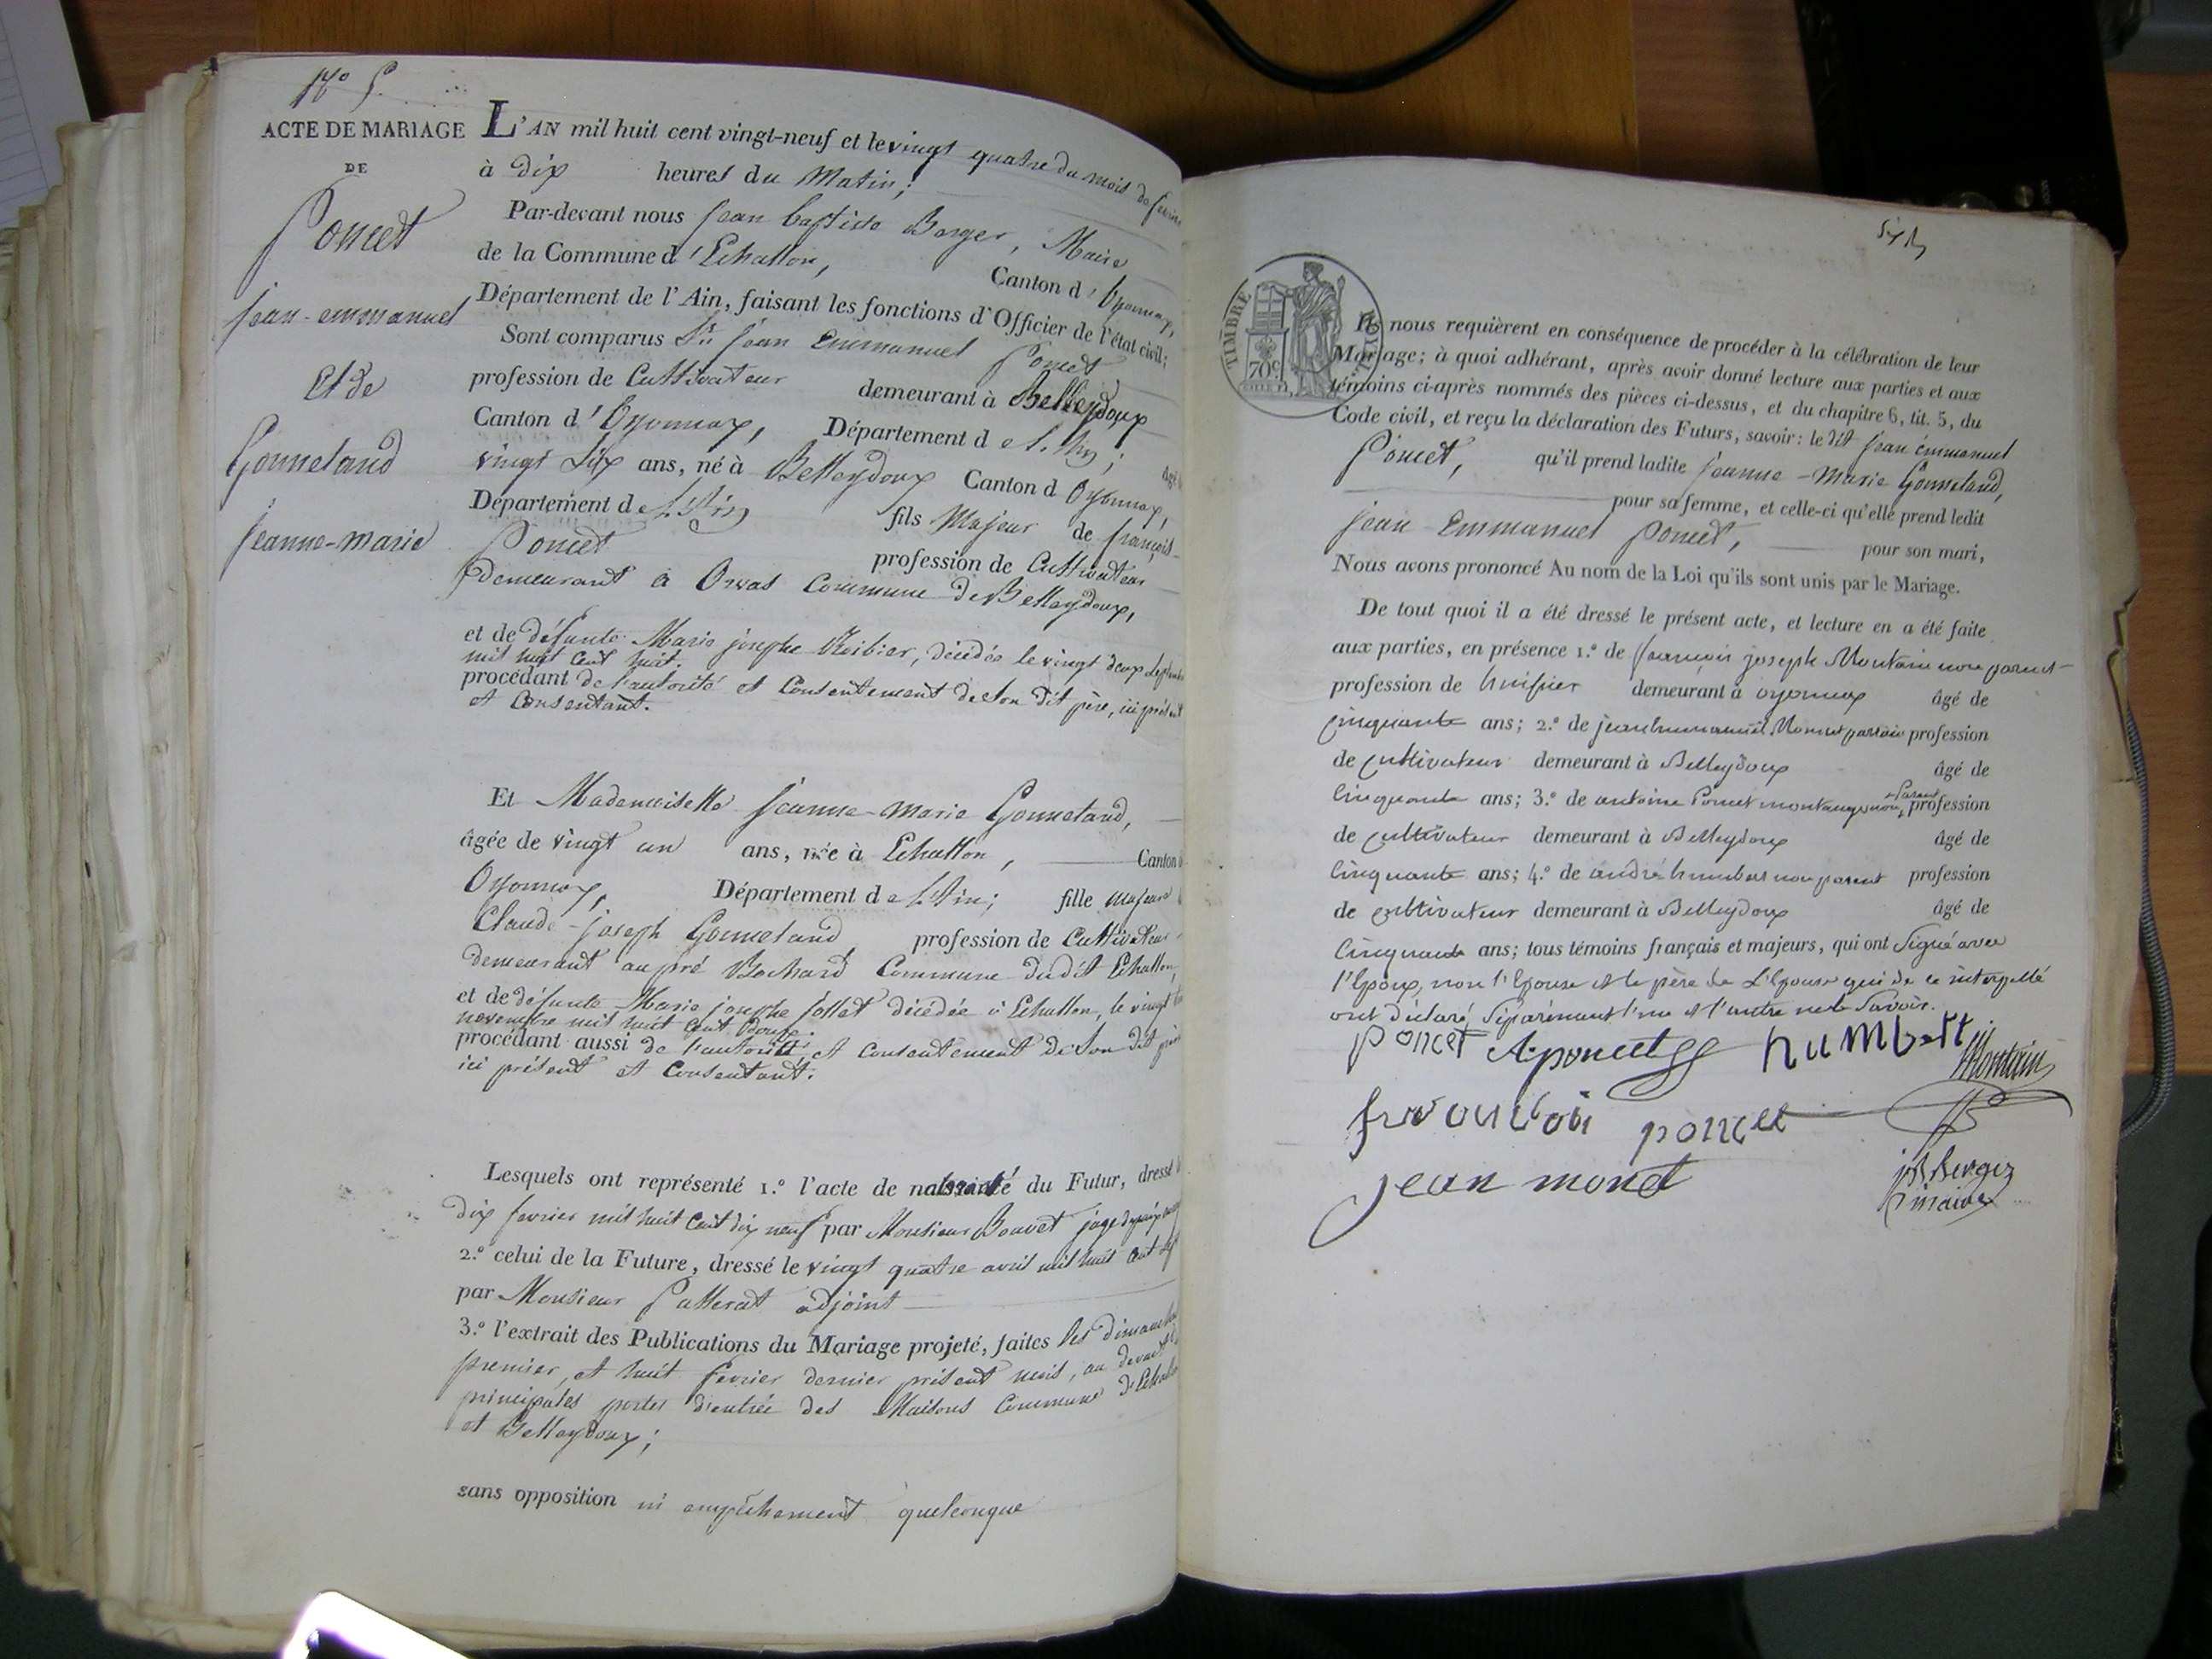 N.o 5.
ACTE DE MARIAGE
DE
Poncet
Jean-emmanuel
Et de
Gonnetand
Jeanne-marie
L'AN mil huit cent vingt-neuf et le vingt quatre du mois de fevrier
à dix heures du Matin;
Par-devant nous Jean baptiste Berger, Maire
de la Commune d'Echallon, Canton d'Oyonnax,
Département de l'Ain, faisant les fonctions d'Officier de l'état civil;
Sont comparus Sr. Jean Emmanuel Poncet
profession de Cultivateur demeurant à Belleydoux
Canton d'Oyonnax, Département de L'Ain; âgé de
vingt Six ans, né à Belleydoux Canton d Oyonnax,
Département de L'Ain fils Majeur de françois
Poncet profession de Cultivateur
demeurant à Orvas Commune de Belleydoux,
et de défunte Marie josephe décédée le vingt deux
mil huit cent huit.
procédant de l'autorité et Consentement de Son dit père, ici présent
et Consentant.
Et Mademoiselle Jeanne-Marie Gonnetand,
âgée de vingt un ans, née à Echallon, Canton d
Oyonnax, Département de L'Ain; fille majeure
Claude-joseph Gonnetand profession de Cultivateur
demeurant au pré Bochard Commune dudit Echallon,
et de défunte Marie josephe décédée à Echallon, le vingt
novembre mil huit cent douze.
procédant aussi de l'autorité et consentement de Son dit père
ici présent et Consentant.
Lesquels ont représenté 1.º l'acte de du Futur, dressé
dix fevrier mil huit cent dix neuf par Monsieur Bouvet juge de paix
2.º celui de la Future, dressé le vingt quatre avril mil huit cent
par Monsieur adjoint
3.º l'extrait des Publications du Mariage projeté, faites les dimanches
premier, et huit fevrier dernier présent mois, au devant
principales portes d'entrée des Maisons Commune d'Echallon
et Belleydoux;
sans opposition ni empêchement quelconque
TIMBRE
ROYAL
70 c
Ils nous requièrent en conséquence de procéder à la célébration de leur
Mariage; à quoi adhérant, après avoir donné lecture aux parties et aux
témoins ci-après nommés des pièces ci-dessus, et du chapitre 6, tit. 5, du
Code civil, et reçu la déclaration des Futurs, savoir: le dit Jean Emmanuel
Poncet, qu'il prend ladite Jeanne-Marie Gonnetand,
pour sa femme, et celle-ci qu'elle prend ledit
Jean Emmanuel Poncet, pour son mari,
Nous avons prononcé Au nom de la Loi qu'ils sont unis par le Mariage.
De tout quoi il a été dressé le présent acte, et lecture en a été faite
aux parties, en présence 1.º de françois joseph Montain non parent
profession de huissier demeurant à oyonnax âgé de
cinquante ans; 2.º de jean Emmanuel Monet profession
de cultivateur demeurant à Belleydoux âgé de
cinquante ans; 3.º de antoine Poncet non parent, profession
de cultivateur demeurant à Belleydoux âgé de
cinquante ans; 4.º de andré humbert non parent profession
de cultivateur demeurant à Belleydoux âgé de
cinquante ans; tous témoins français et majeurs, qui ont Signé avec
l'Epoux, non l'Epouse et le père de L'Epouse qui de ce interpellé
ont déclaré Séparément l'un et l'autre ne le Savoir.
poncet A. poncet humbert Montain
poncet
jean monet
jB Berger
maire